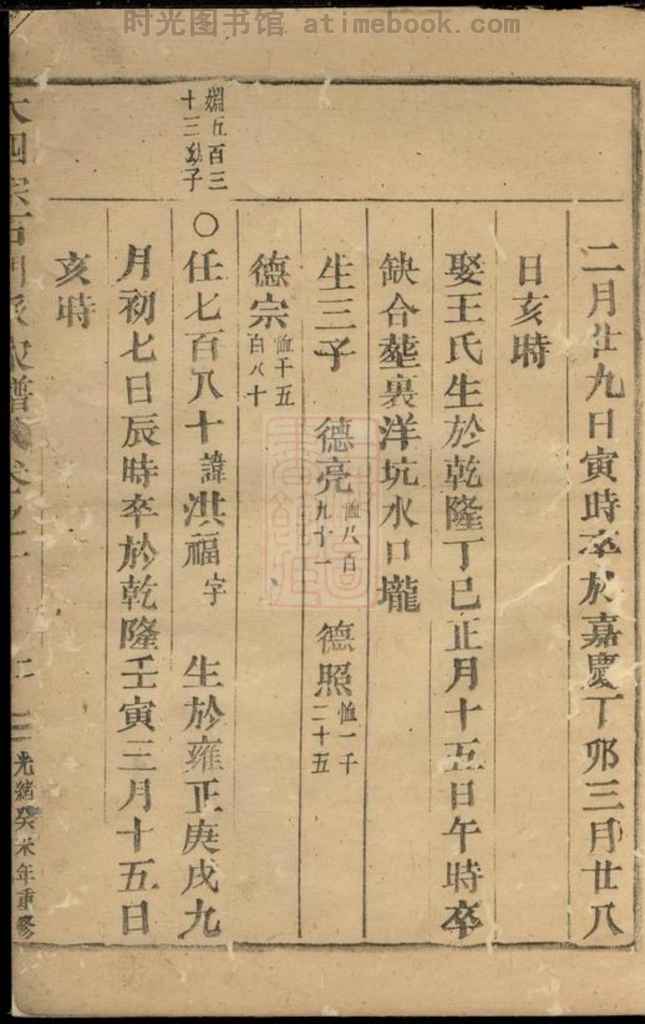 时光图书馆 - atimebook.com
二月廿九日寅時卒於嘉慶丁卯三月廿八
日亥時
娶王氏生於乾隆丁巳正月十五日午時卒
缺合塟裏洋坑水口壠
生三子 德亮 恤八百九十一 德照 恤一千二十五
德宗 恤千五百八十
五百三
十三 子
○任七百八十諱洪福字 生於雍正庚戌九
月初七日辰時卒於乾隆壬寅三月十五日
亥時
光緒癸未年重修